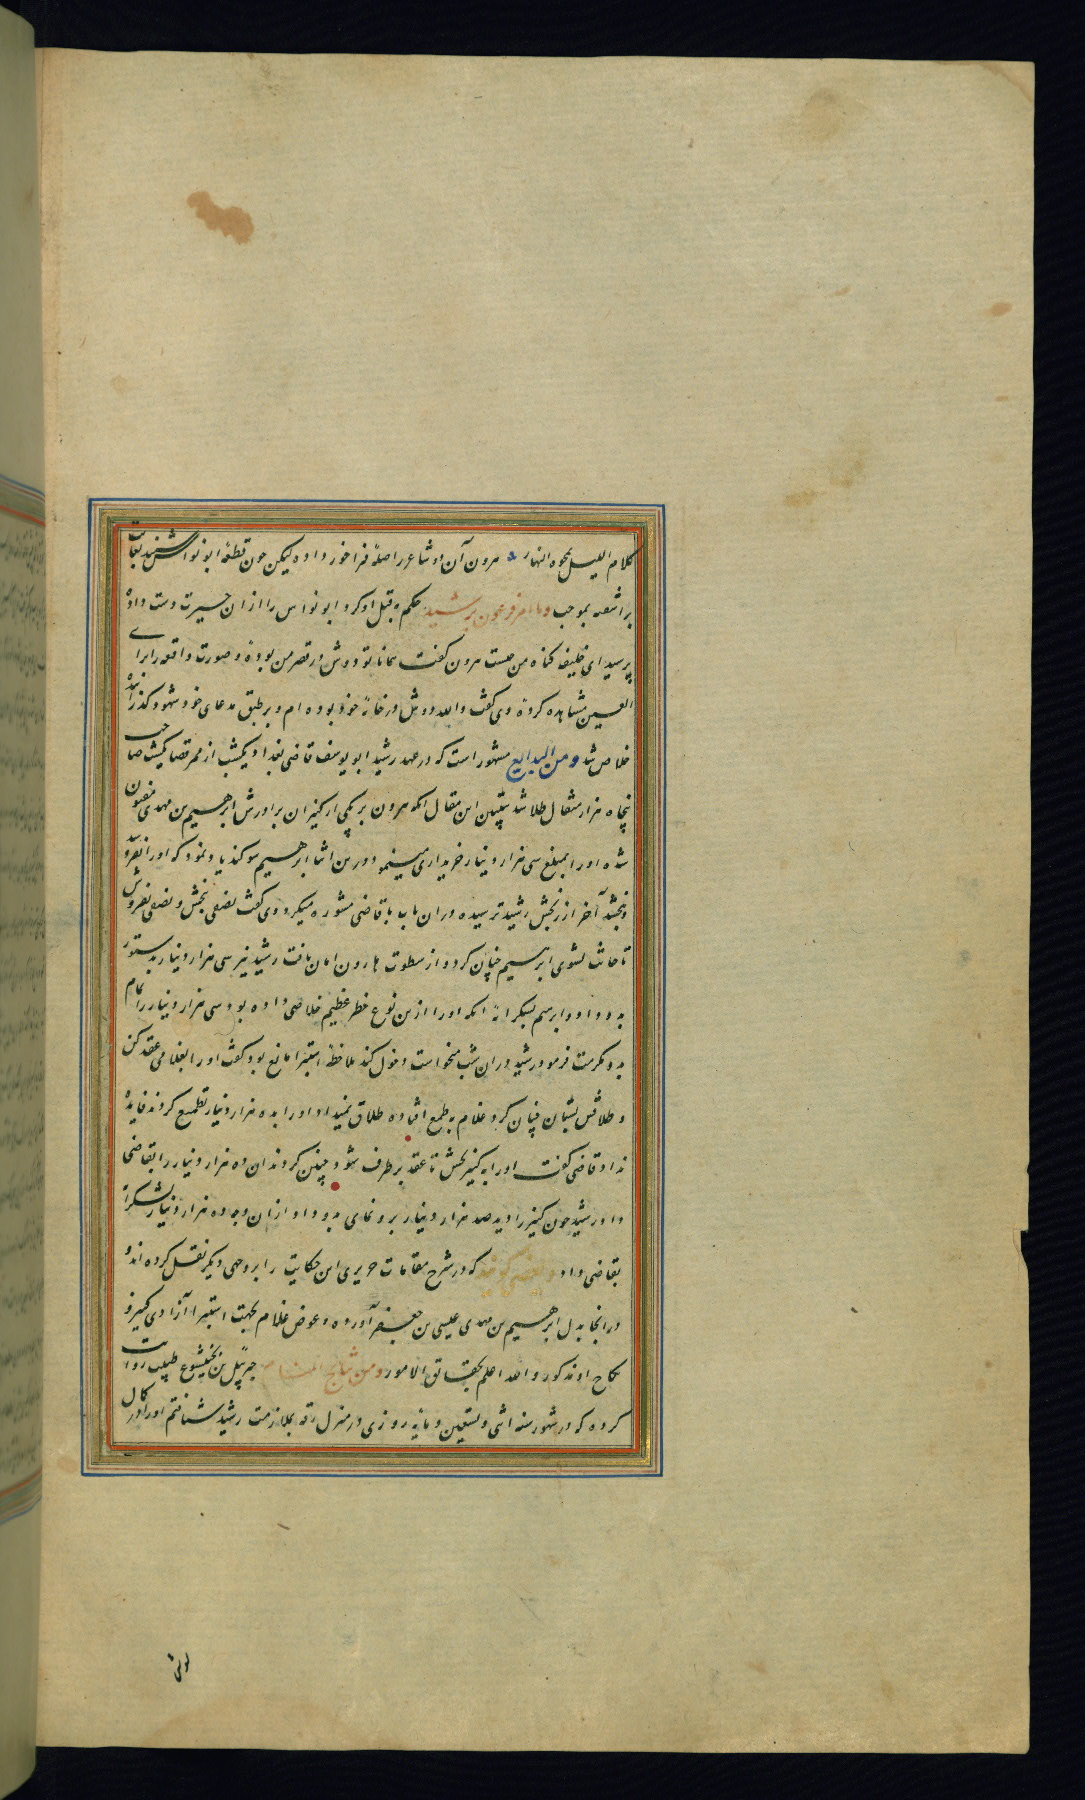 کلام اللیل یمحوه النهار هرون آن دو شاعر را صلهٔ فراخور داده لیکن چون قطعهٔ ابو نواس شنید بغایت
بر آشفته بموجب وما امر فرعون برشید حکم بقتل او کرد ابو نواس را از ان حیرت دست داده
پرسید ای خلیفه گناه من چیست هرون گفت همانا تو دوش در قصر من بودهٔ و صورت واقعه را برای
العین مشاهده کردهٔ وی گفت والله دوش در خانهٔ خود بوده ام و بر طبق مدعای خود شهود گذرانیده
خلاص شد ومن البدایع مشهور است که در عهد رشید ابو یوسف قاضی بغداد یکشب از ممر قضا یکشب صاحب
پنجاه هزار مثقال طلا شد تبیین این مقال آنکه هرون بر یکی از کنیزان برادرش ابرهیم بن مهدی مفتون
شده او را بمبلغ سی هزار دینار خریداری مینمود و درین اثنا ابرهیم سوکند یاد نمود که او را نفروشد
و نبخشد آخر از رنجش رشید ترسیده در ان باب با قاضی مشوره میکرد وی گفت نصفی ببخش و نصفی بفروش
تا حانث نشوی ابرهیم چنان کرد و از سطوت هارون امان یافت رشید نیز سی هزار دینار بدستور
بدو داد و ابرهیم بشکرانهٔ آنکه او را ازین نوع خطر عظیم خلاصی داده بود سی هزار دینار را تمام
بدو مکرمت فرمود رشید در ان شب میخواست دخول کند ملاحظهٔ استبرا مانع بود گفت او را بغلامی عقد کن
و طلاقش بستان چنان کرد غلام بطمع افتاده طلاق نمیداد او را بده هزار دینار تطمیع کردند فایده
نداد قاضی گفت او را بکنیز بخش تا عقد برطرف شود چنین کردند ان ده هزار دینار را بقاضی
داد رشید چون کنیز را دید صد هزار دینار برو نمای بدو داد از ان وجه ده هزار دینار بشکرانه
بقاضی داد و بعضی گویند که در شرح مقامات حریری این حکایت را بر وجهی دیگر نقل کرده اند و
در انجا بدل ابرهیم بن مهدی عیسی بن جعفر آورده و عوض غلام بجهت استبرا آزادی کنیز و
نکاح او مذکور و الله اعلم بحقایق الامور ومن جبرئیل بن بختیشوع طبیب روایت
کرده که در شهور سنه اثنی و تسعین و مایه روزی در منزل رقه بملازمت رشید شتافتم او را در کمال